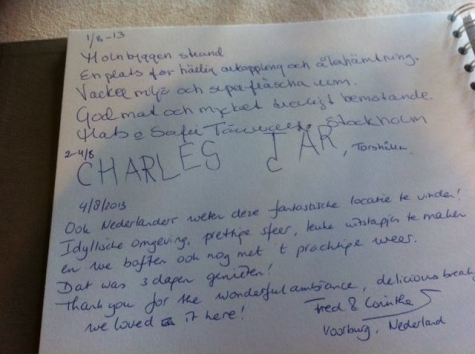 1/8-13
Holmbyggen strand
En plats för härlig avkoppling och återhämtning.
Vacker miljö och superfräscha rum.
God mat och mycket trevligt bemötande.
Stockholm
2-4/8
CHARLES JAR, Torshälla
4/8/2013
Ook Nederlanders weten deze fantastische locatie te vinden!
Idyllische omgeving, prettige sfeer, leuke uitstapjes te maken
en we boften ook nog met 't prachtige weer.
Dat was 3 dagen genieten!
Thank you for the wonderful ambiance, delicious
we loved it here!
Fred & Corinthe
Voorburg, Nederland